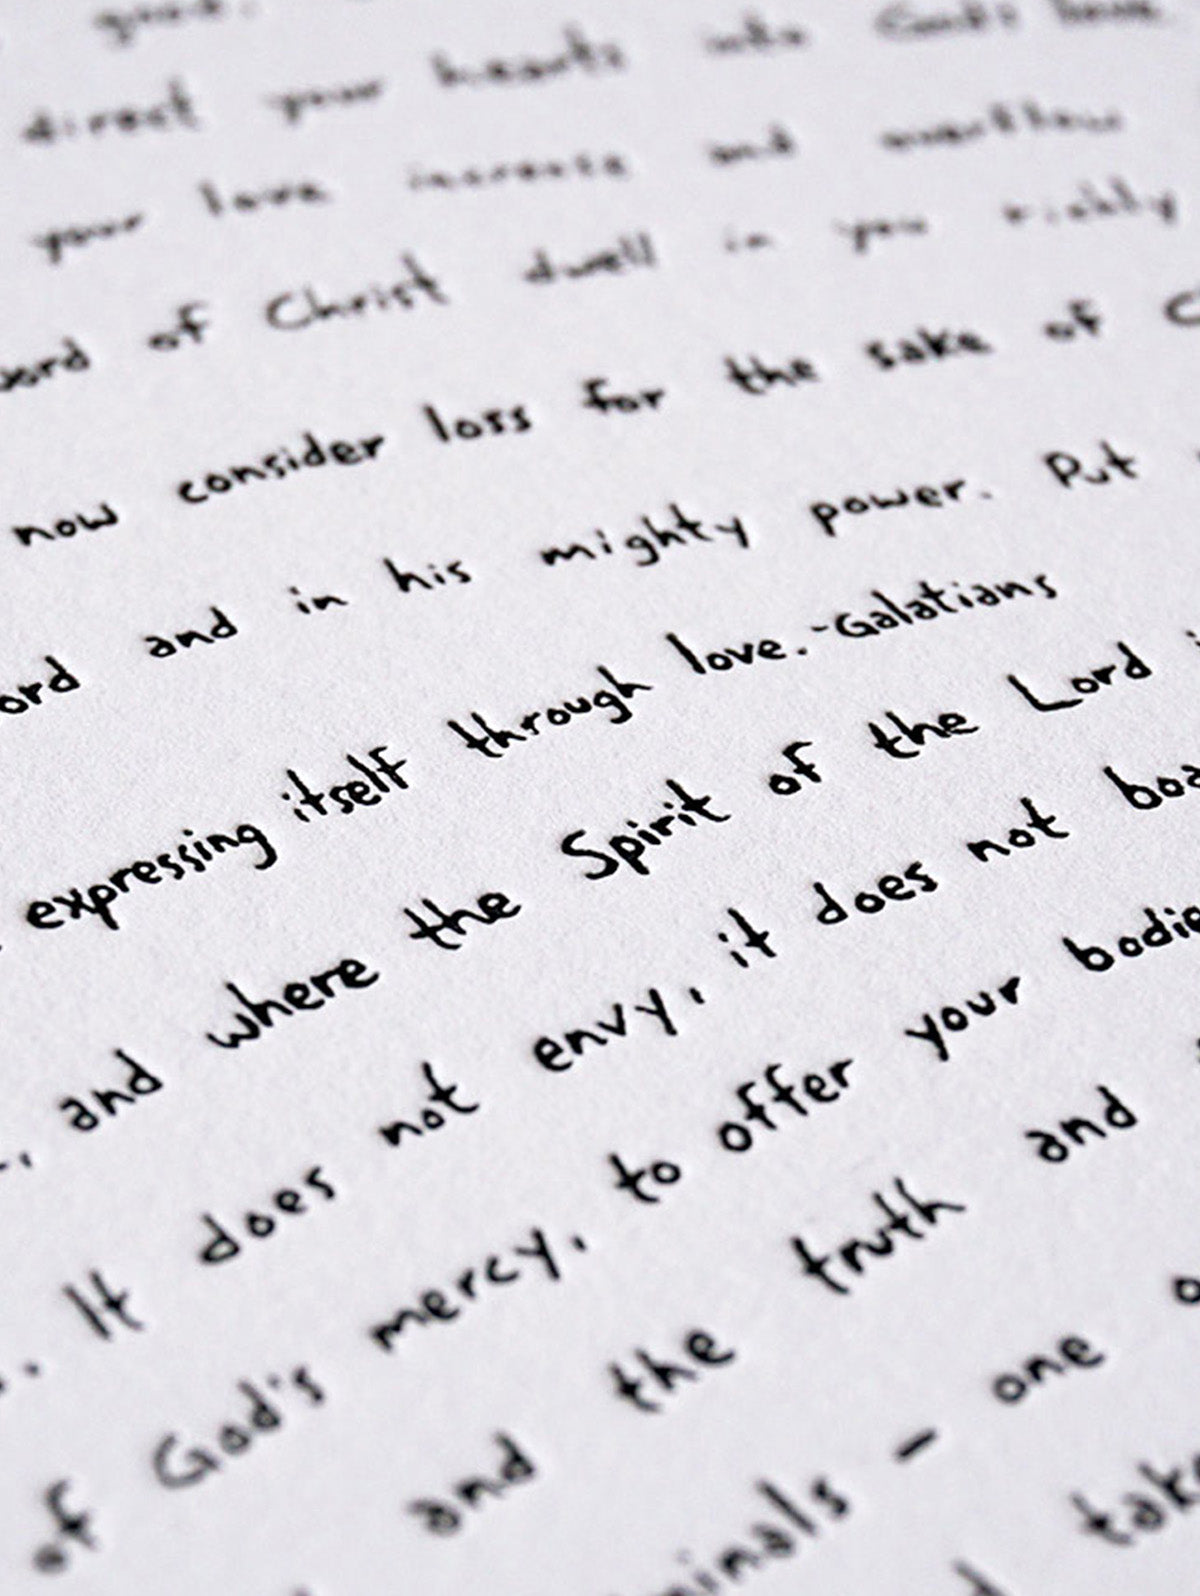 good.
direct your hearts into God's love
your love increase and overflow
word of Christ dwell in you richly
now consider loss for the sake of C
ord and in his mighty power. Put
expressing itself through love.-Galatians
, and where the Spirit of the Lord i
. It does not envy, it does not boa
of God's mercy, to offer your bodie
and the truth and
minals - one o
take